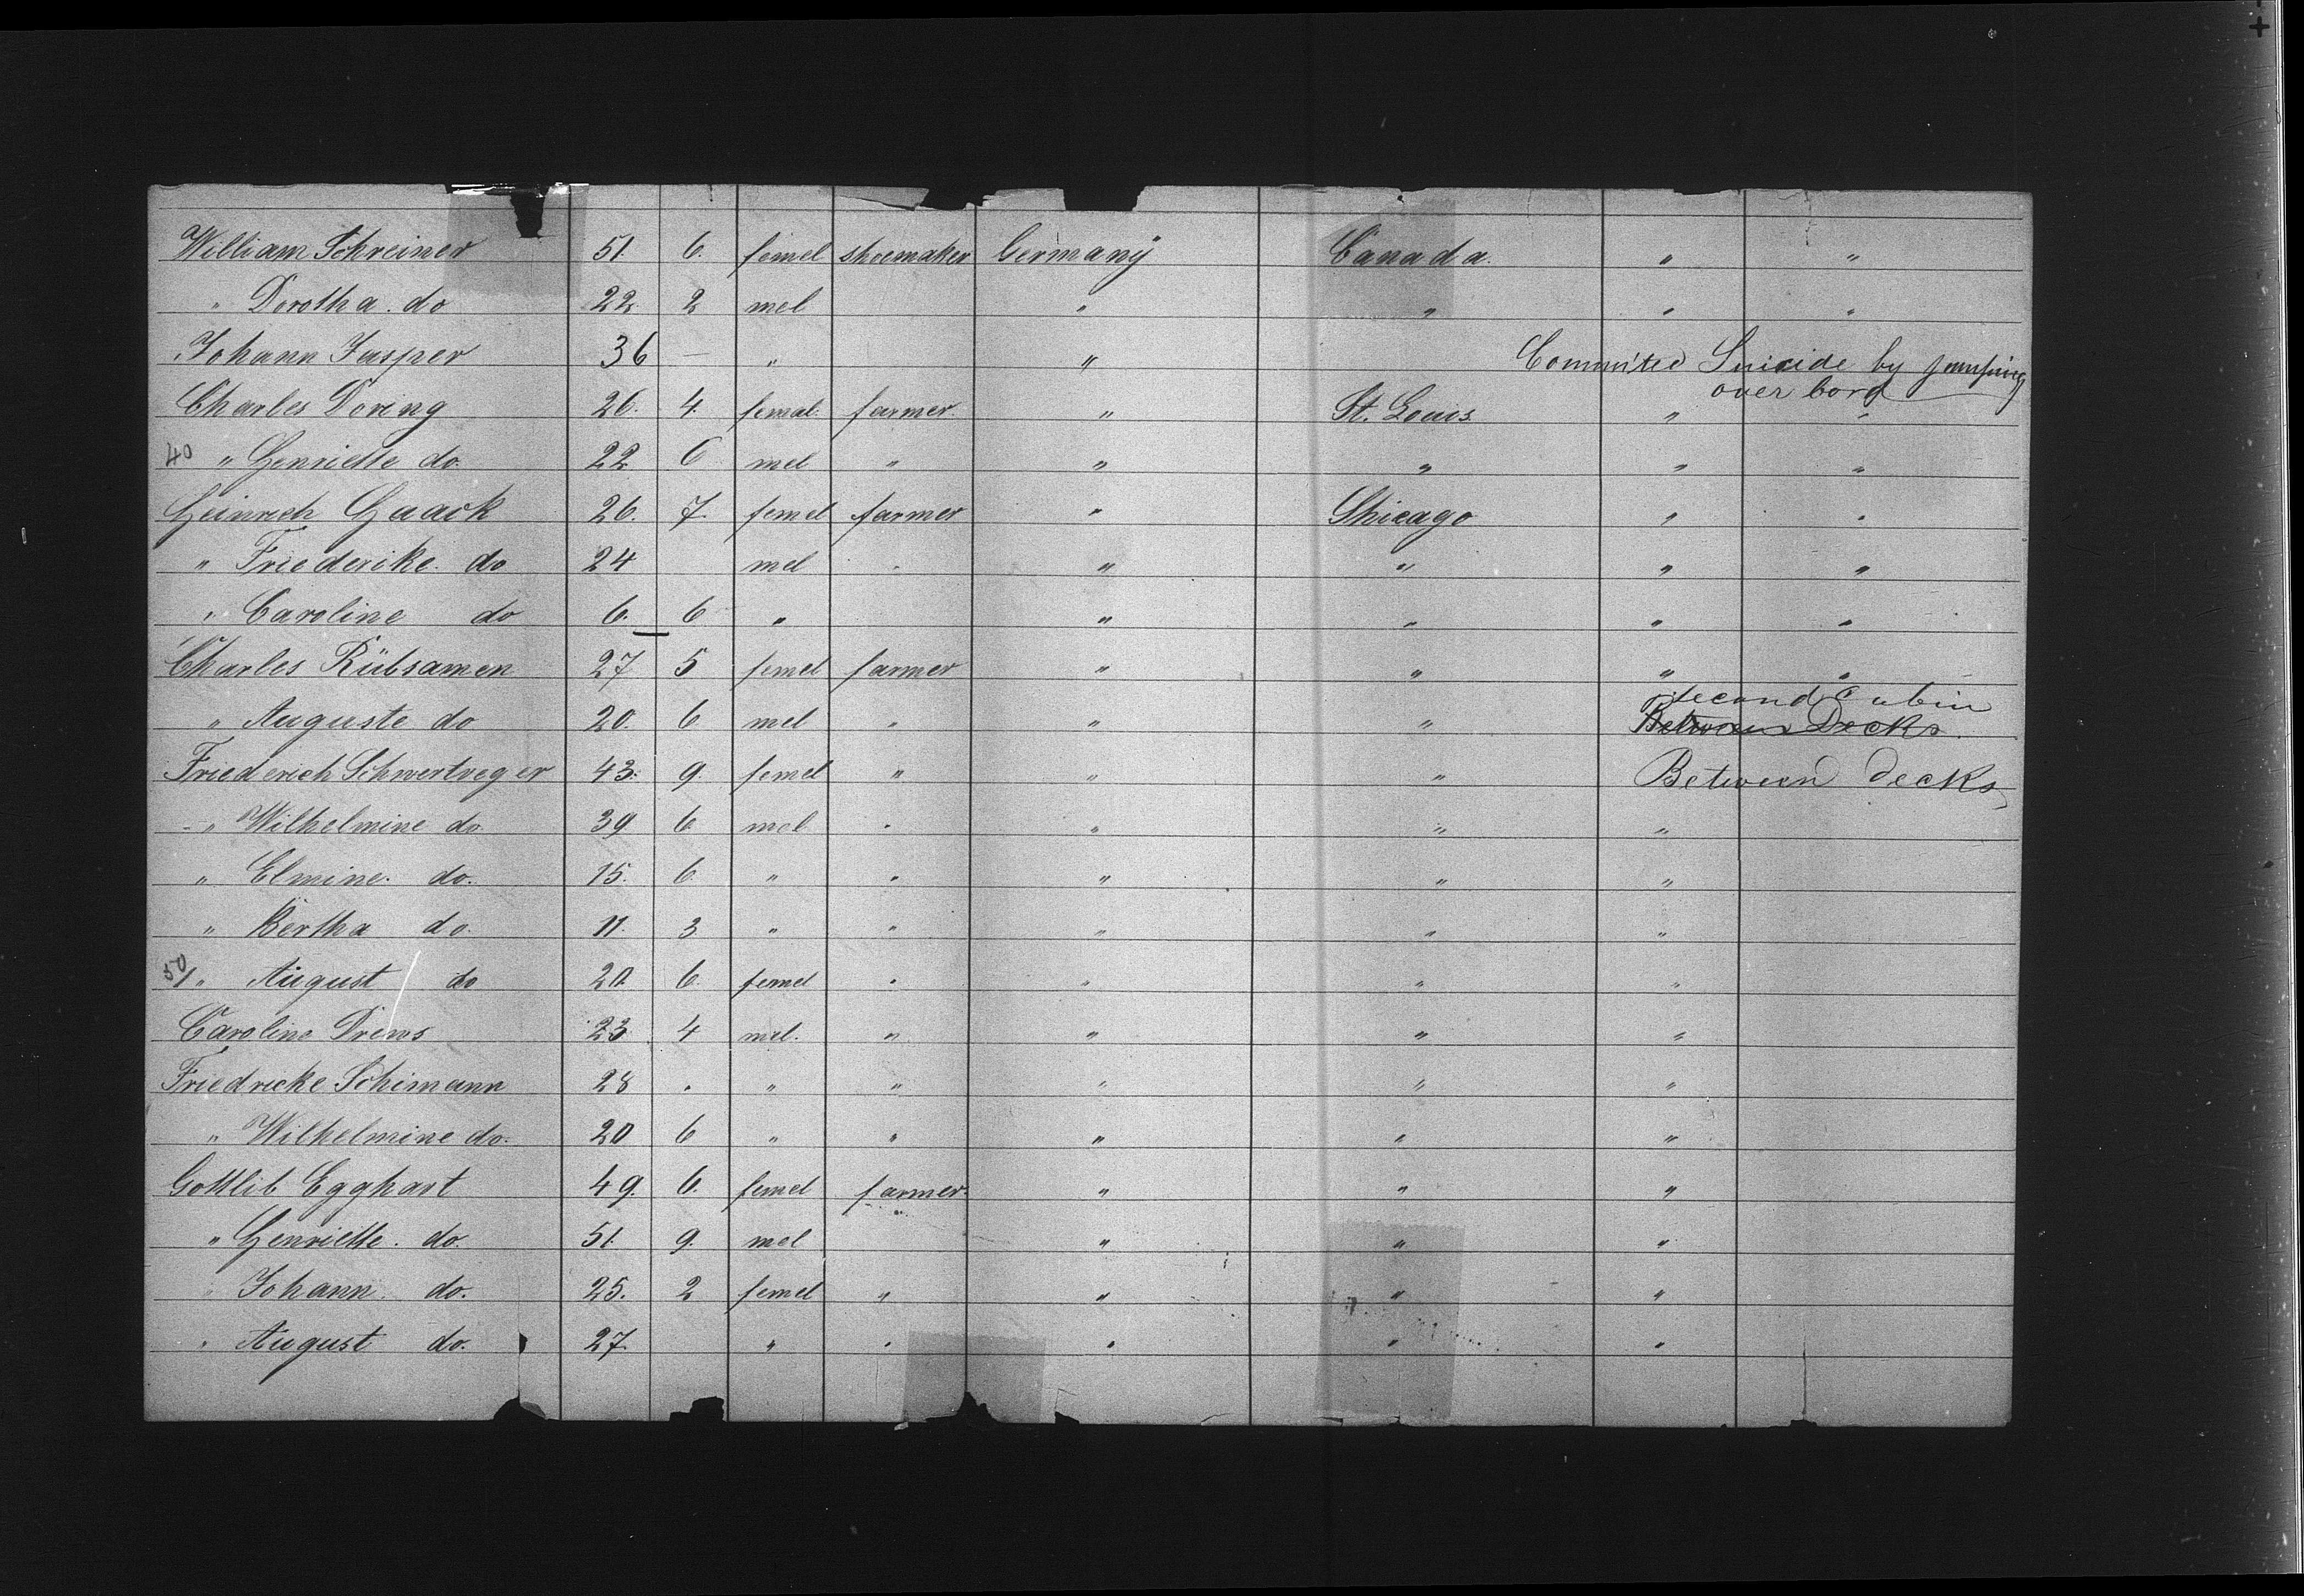 William Schreiner 51. 6. femel shoemaker Germany Canada. " "
" Dorotha. do 22. 2 mel " " " "
Johann Jasper 36 — " " Commited Suicide by jumping
over bord
Charles Doring 26. 4. femal. farmer. " St. Louis " "
40 " Henriette do. 22 6 mel " " " " "
Heinrich Haack 26. 7. femel farmer " Chicago " "
" Friederike. do 24 mel " " " " "
" Caroline do 6. 6 " " " " "
Charles Rübsamen 27 5 femel farmer " " " "
Second Cabin
" Auguste do 20. 6. mel " " " Between Decks.
Friederich Schwertveger 43. 9. femel " " " Between decks
" Wilhelmine do 39 6 mel " " " "
" Elmine. do. 15. 6. " " " " "
" Bertha do. 11. 3 " " " " "
50 " August do 20. 6. femel " " " "
Caroline Drews 23 4 mel. " " " "
Friedricke Schimann 28 " " " " " "
" Wilhelmine do. 20 6 " " " " "
Gottlib Egghart 49. 6. femel farmer. " " "
" Henriette. do. 51. 9. mel " " "
" Johann. do. 25. 2 femel " " " "
" August do. 27. " " " " "